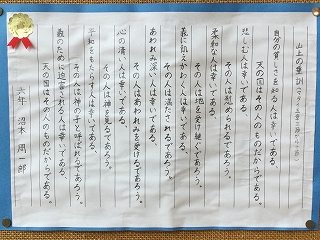 山上の垂訓（マタイ五章三節から十節）
自分の貧しさを知る人は幸いである、
天の国はその人のものだからである。
悲しむ人は幸いである、
その人は慰められるであろう。
柔和な人は幸いである、
その人は地を受け継ぐであろう。
義に飢えかわく人は幸いである、
その人は満たされるであろう。
あわれみ深い人は幸いである、
その人はあわれみを受けるであろう。
心の清い人は幸いである、
その人は神を見るであろう。
平和をもたらす人は幸いである、
その人は神の子と呼ばれるであろう。
義のために迫害される人は幸いである、
天の国はその人のものだからである。
六年　沼本　周一郎